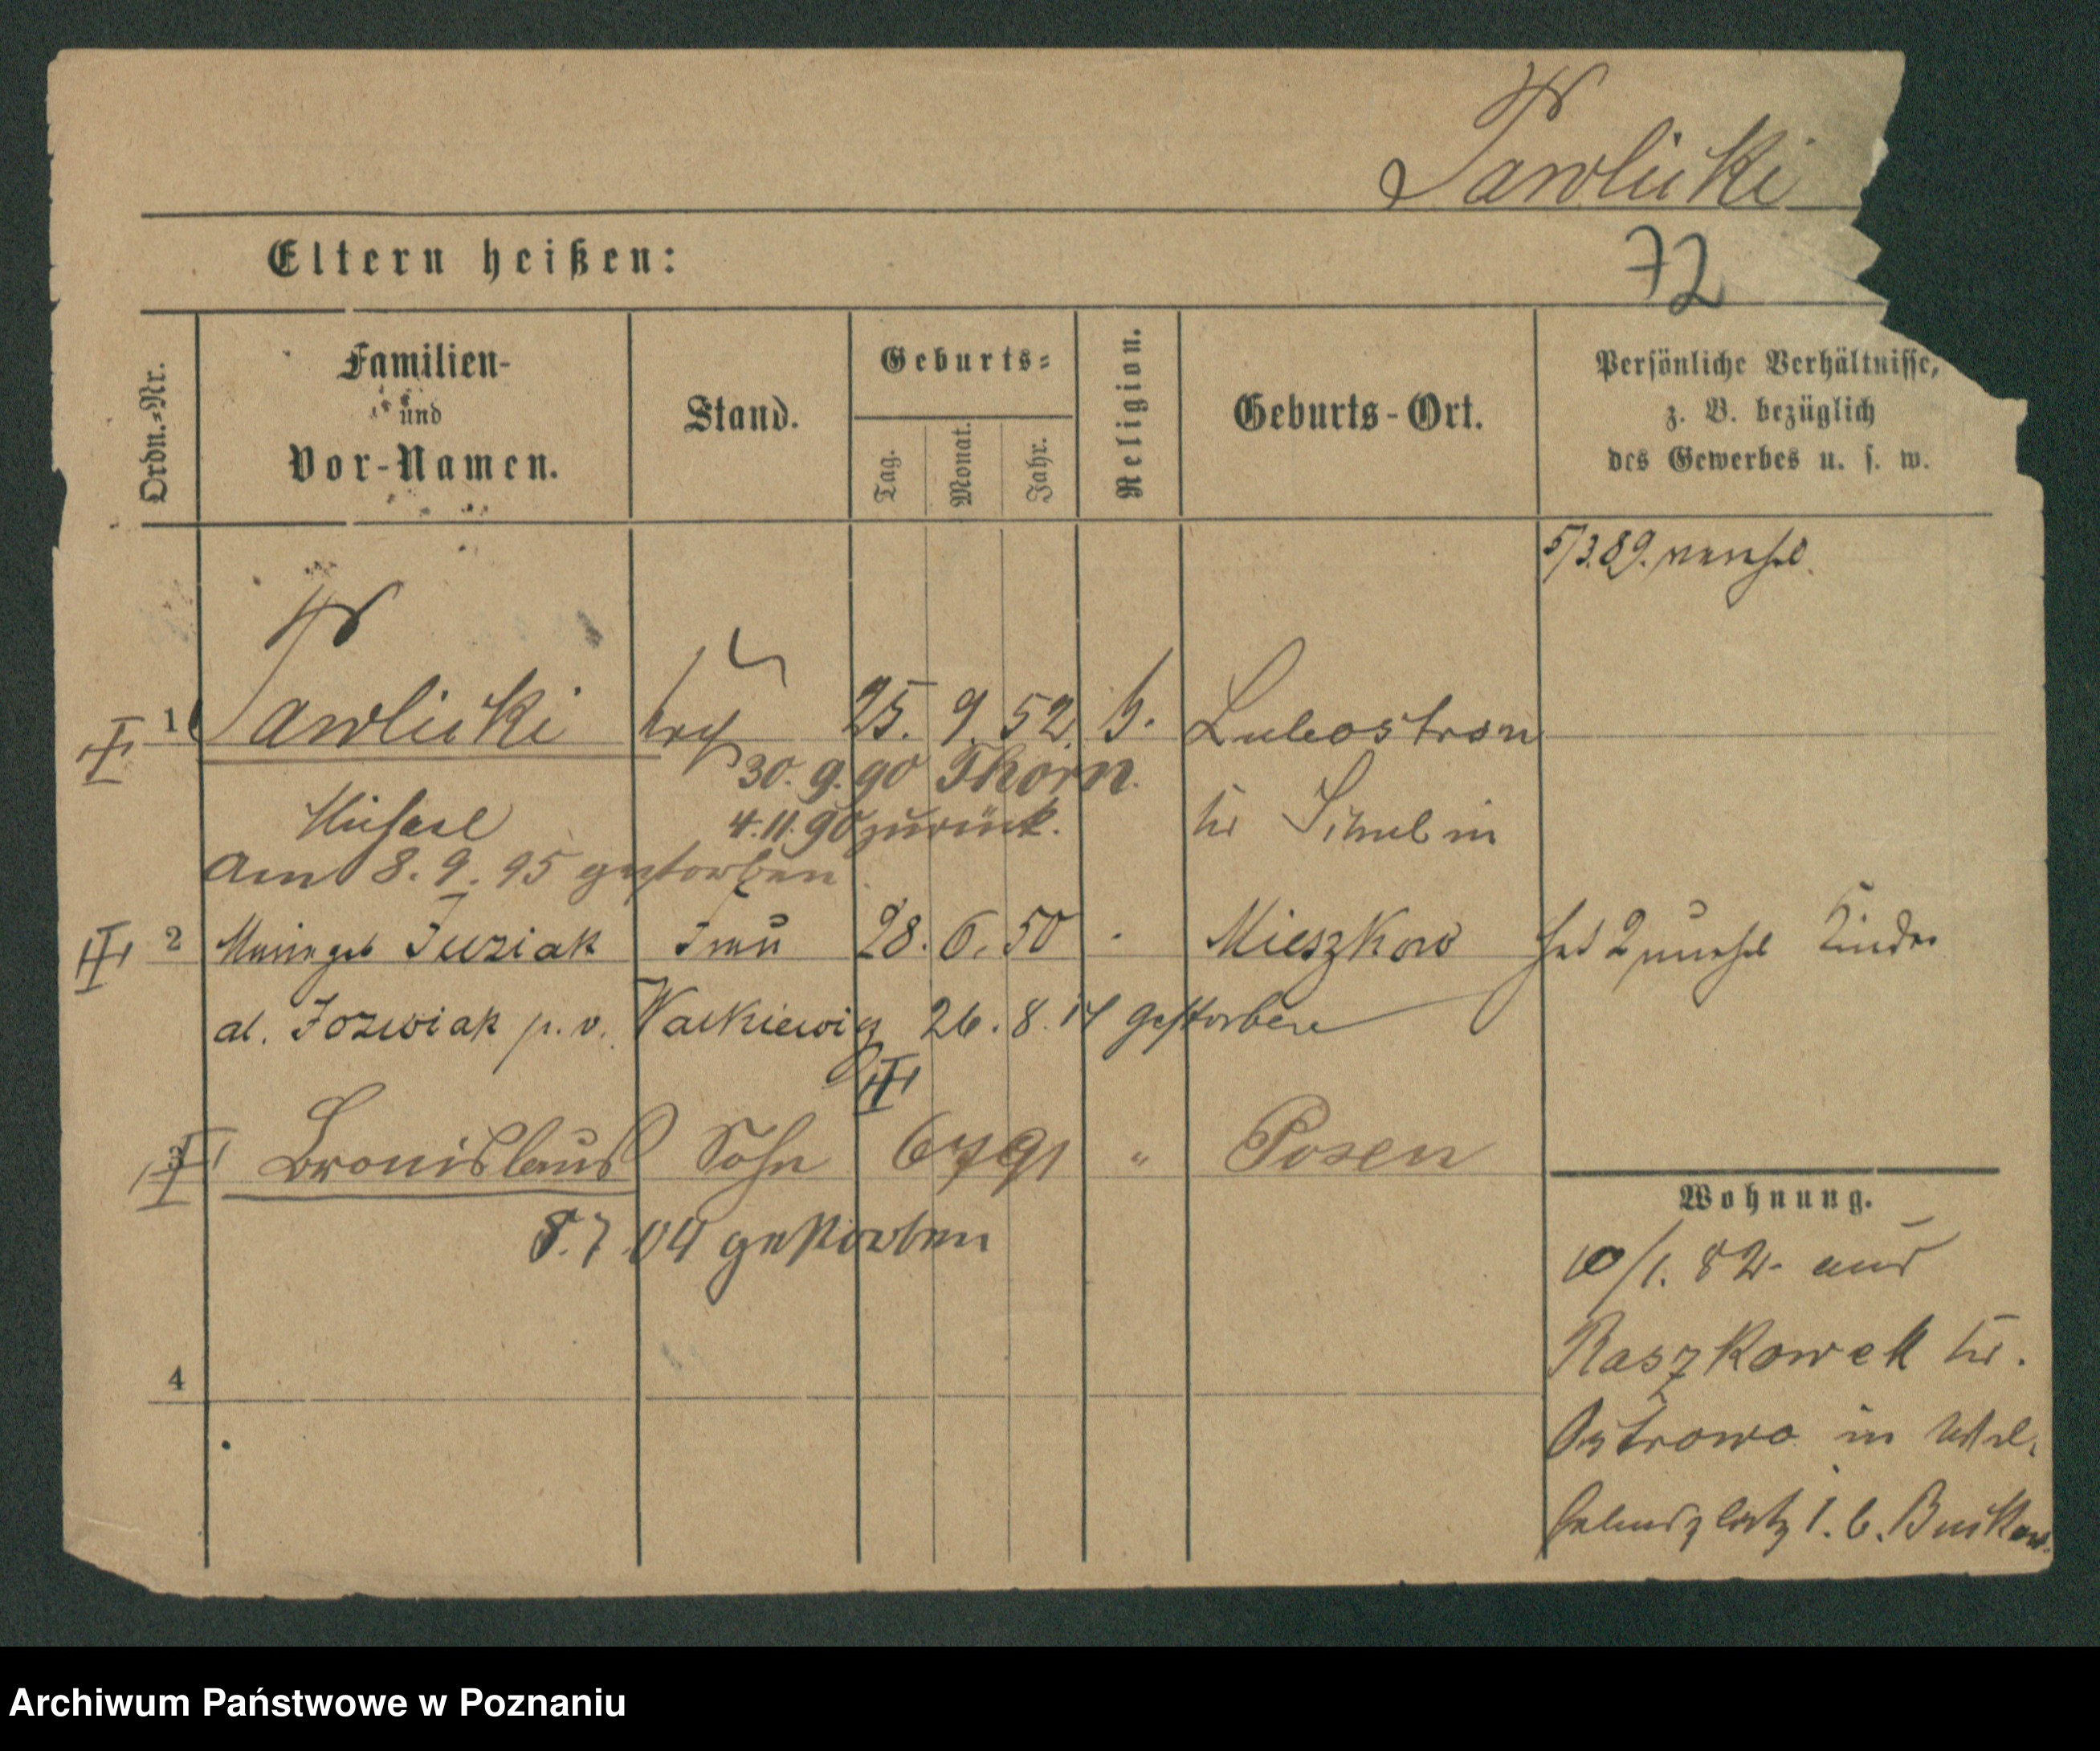 Pawlicki
Eltern heißen:
72
Ordn.-Nr.
Familien-
und
Vor-Namen.
Stand.
Geburts-
Tag.
Monat.
Jahr.
Religion.
Geburts-Ort.
Persönliche Verhältnisse,
z. B. bezüglich
des Gewerbes u. s. w.
5/3.89.
1 Pawlicki 25. 9. 52. Lubostron
30. 9. 90 Thorn.
Michael 4. 11. 90 zurück. Kr Schubin
Am 8. 9. 95 gestorben
2 Marie geb Juziak Frau 28. 6. 50 Mieszkow hat 2 Kinder
al. Jozwiak p. v. Walkiewicz 26. 8. 14 gestorben
3 Bronislaus Sohn 6 7 91 " Posen
8. 7. 04 gestorben
Wohnung.
10/1. 82. aus
Raszkowek Kr.
Ostrowo in Wil-
helmsplatz
4
Archiwum Państwowe w Poznaniu